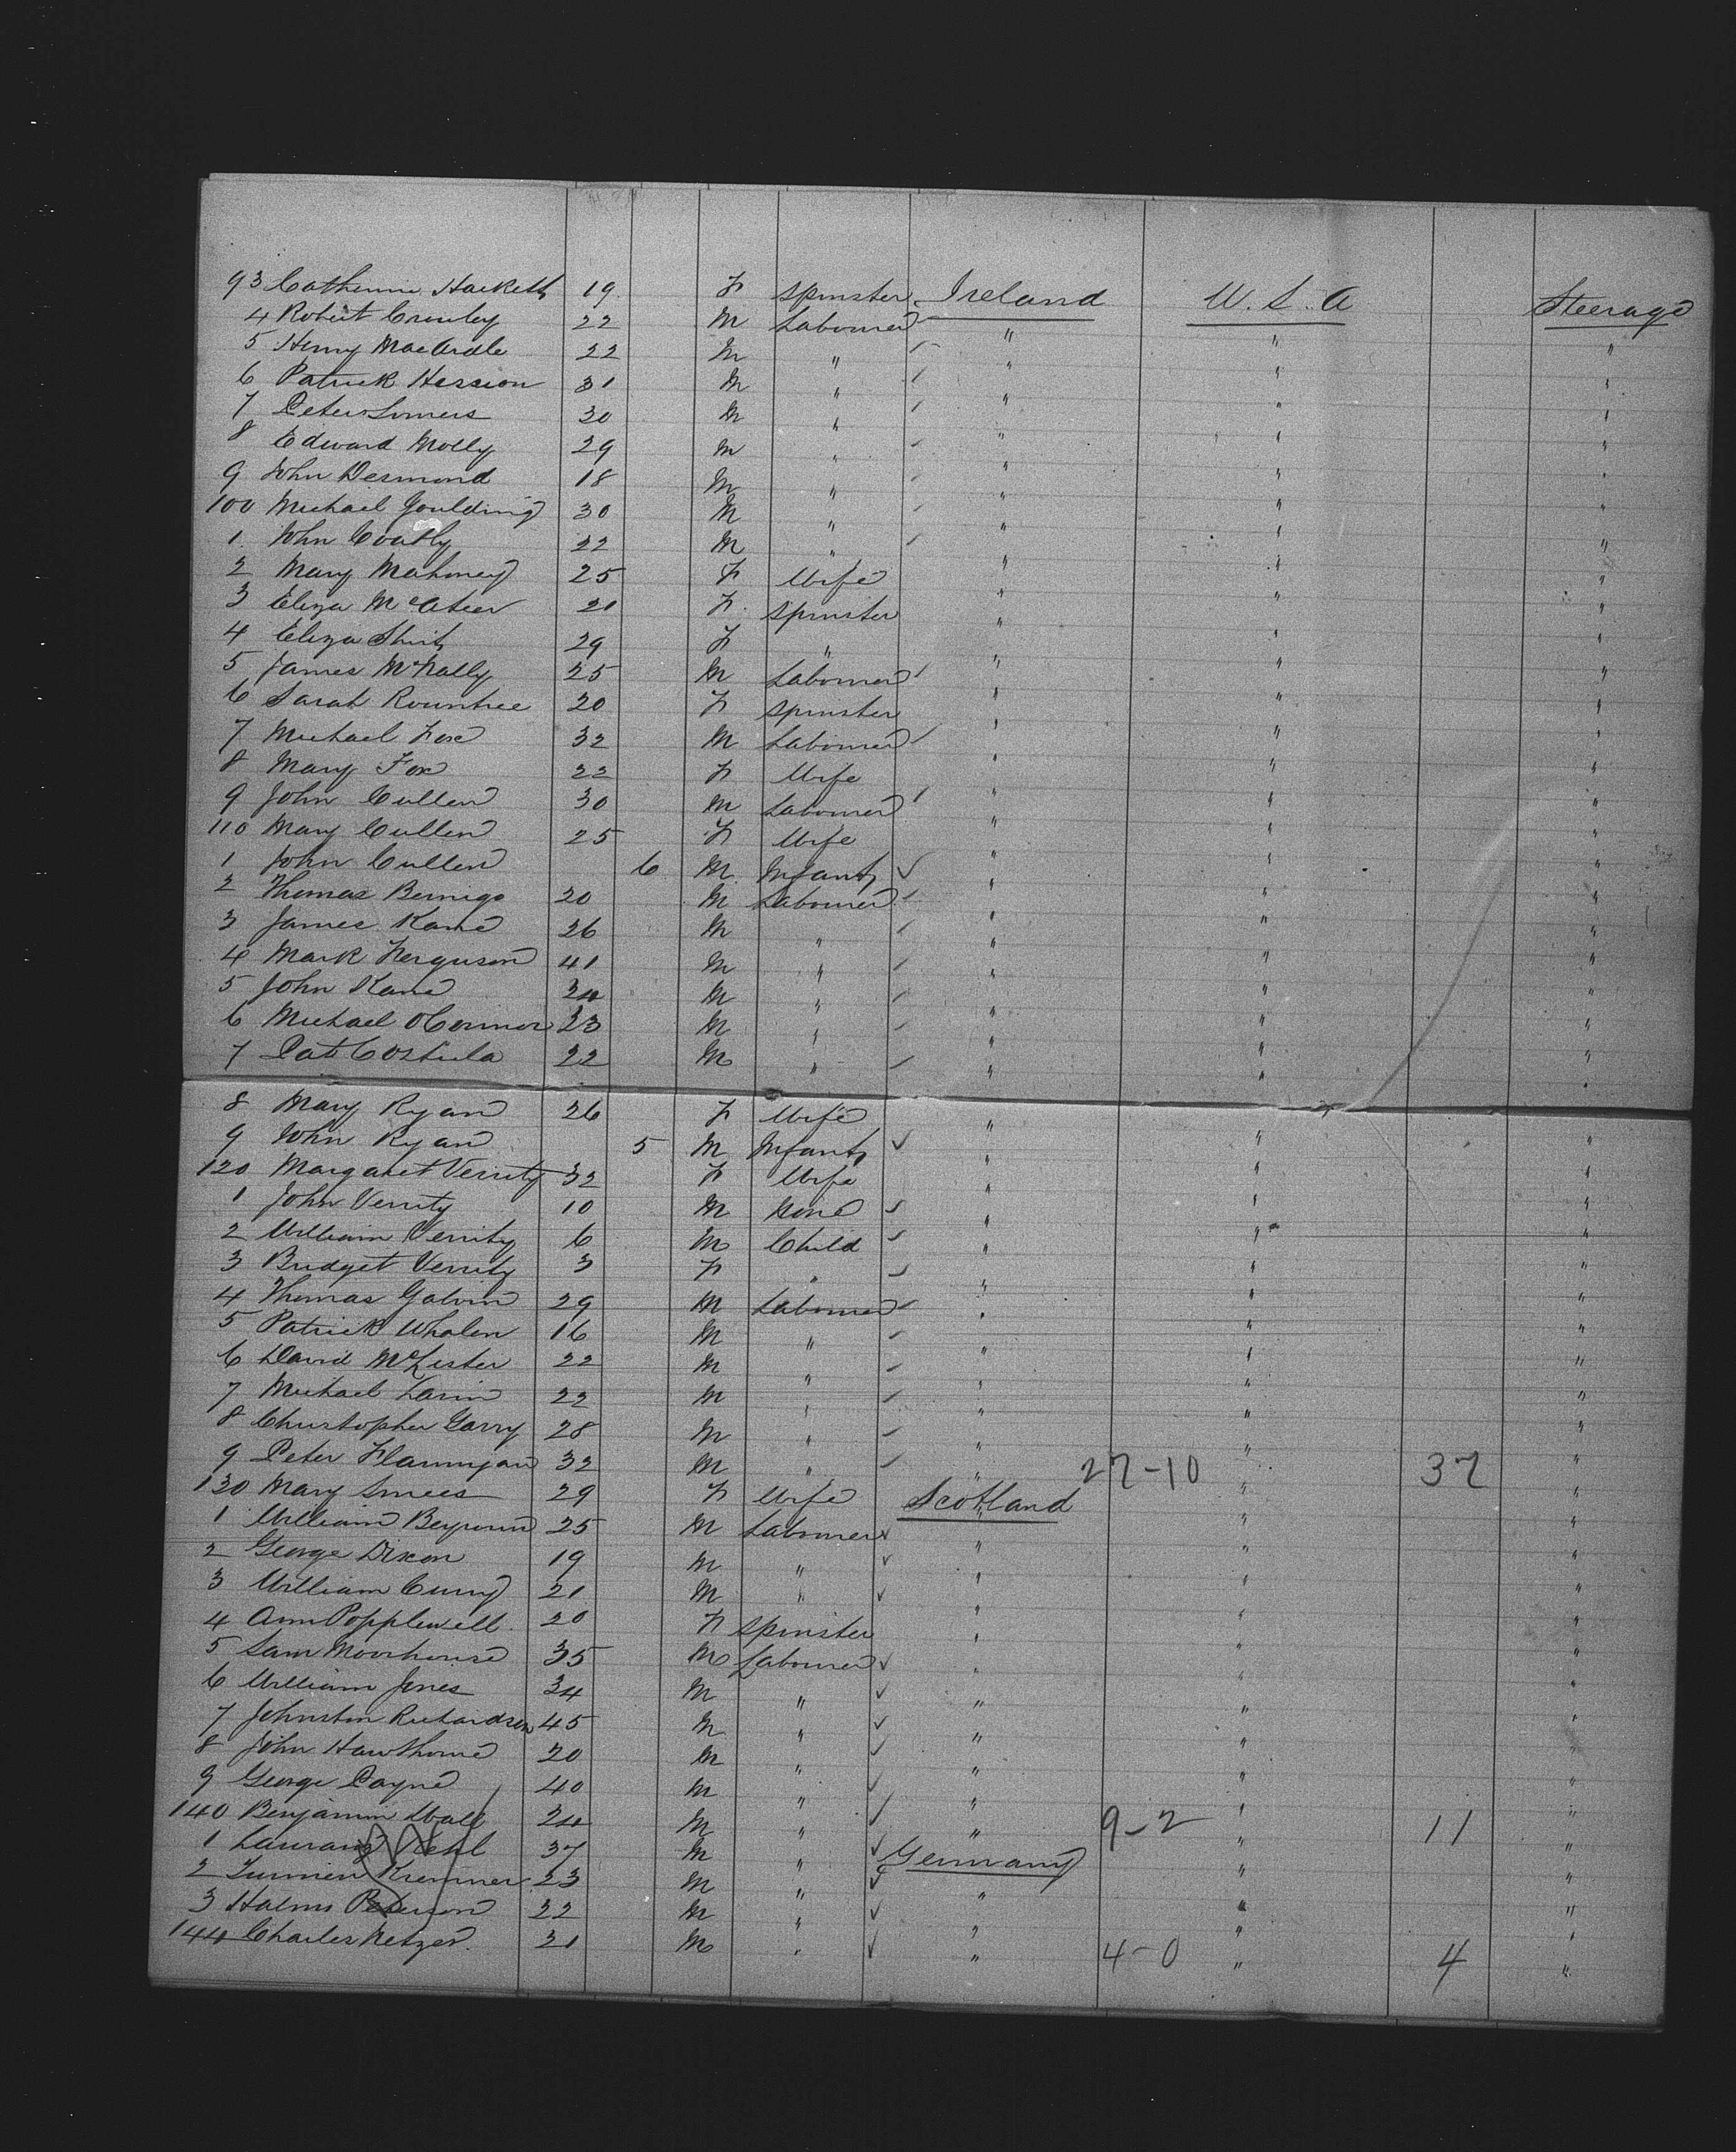 93 Catherine Hackett 19 F Spinster Ireland U.S.A Steerage
4 Robert Crowley 22 M Labourer " " "
5 Henry MacArdle 22 M " " " "
6 Patrick Hession 31 M " " " "
7 Peter Somers 30 M " " " "
8 Edward Molly 29 M " " " "
9 John Desmond 18 M " " " "
100 Michael Goulding 30 M " " " "
1 John 22 M " " " "
2 Mary Mahoney 25 F Wife " " "
3 Eliza McAteer 21 F Spinster " " "
4 Eliza 29 F " " " "
5 James McNally 25 M Labourer " " "
6 Sarah Rountree 20 F Spinster " " "
7 Michael Fox 32 M Labourer " " "
8 Mary Fox 22 F Wife " " "
9 John Cullen 30 M Labourer " " "
110 Mary Cullen 25 F Wife " " "
1 John Cullen 6 M Infant " " "
2 Thomas 20 M Labourer " " "
3 James Kane 26 M " " " "
4 Mark Ferguson 41 M " " " "
5 John Kane 34 M " " " "
6 Michael OConnor 23 M " " " "
7 Pat 22 M " " " "
8 Mary Ryan 26 F Wife " " "
9 John Ryan 5 M Infant " " "
120 Margaret Verrity 32 F Wife " " "
1 John Verrity 10 M None " " "
2 William Verrity 6 M Child " " "
3 Bridget Verrity 3 F " " " "
4 Thomas Galvin 29 M Labourer " " "
5 Patrick Whalen 16 M " " " "
6 David McLister 22 M " " " "
7 Michael Larin 22 M " " " "
8 Christopher Garry 28 M " " " "
9 Peter Flannigan 32 M " " 27-10 " 37 "
130 Mary 29 F Wife Scotland " "
1 William 25 M Labourer " " "
2 George Dixon 19 M " " " "
3 William Curry 21 M " " " "
4 Ann Popplewell 20 F Spinster " " "
5 Sam Moorhouse 35 M Labourer " " "
6 William Jones 34 M " " " "
7 Johnston Richardson 45 M " " " "
8 John Hawthorne 20 M " " " "
9 George Payne 40 M " " " "
140 Benjamin Wall 24 M " " 9-2 " 11 "
1 37 M " Germany " "
2 Kremner 23 M " " " "
3 Peterson 22 M " " " "
144 Charles Netzer 21 M " " 4-0 " 4 "